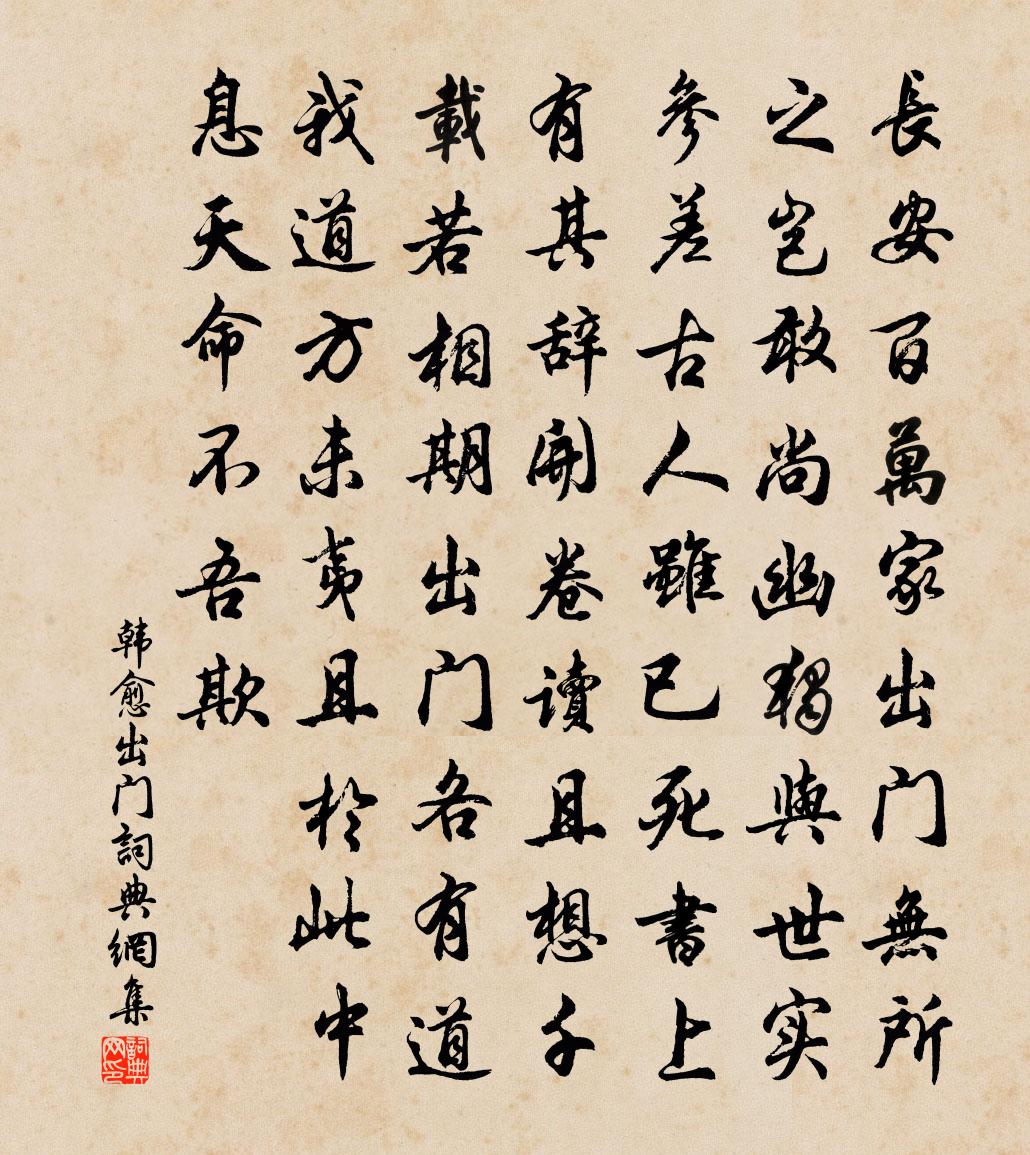 長安百萬家出门無所
之岂敢尚幽獨與世实
參差古人雖已死書上
有其辞開卷读且想千
載若相期出门各有道
我道方未夷且於此中
息天命不吾欺
韩愈出门詞典網集
詞典网印